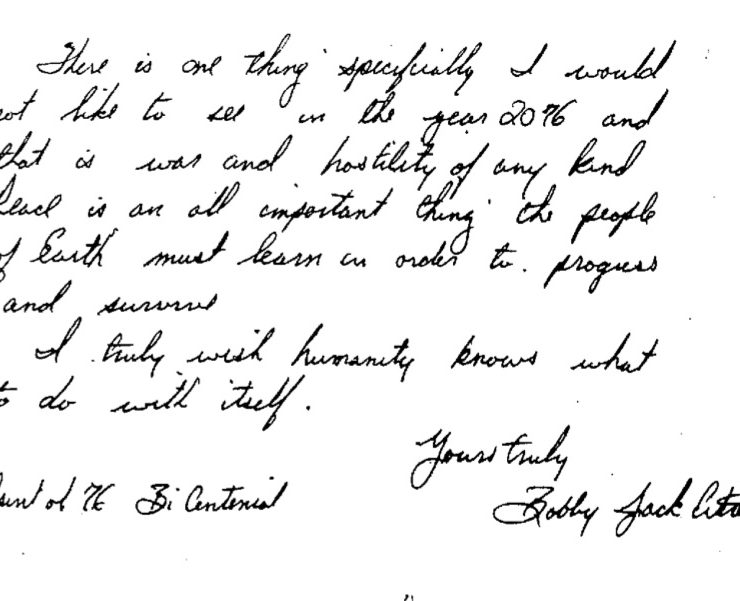 There is one thing specificially I would
not like to see in the year 2076 and
that is war and hostility of any kind
Peace is an all important thing the people
of Earth must learn in order to progress
and survive
I truly wish humanity knows what
to do with itself.
Yours truly
of 76 Bi Centenial
Bobby Jack